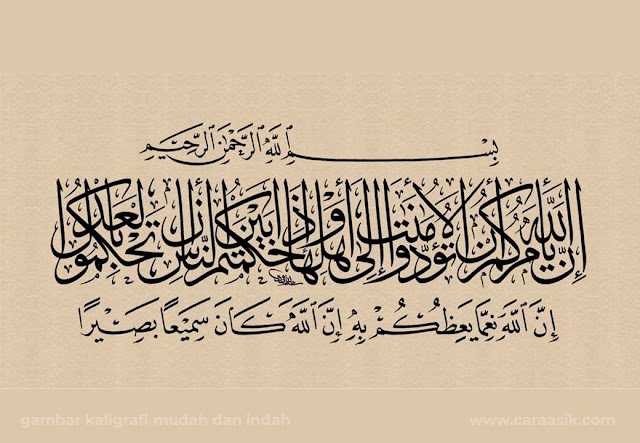 بِسْمِ اللهِ الرَّحْمٰنِ الرَّحِيْمِ
إِنَّ اللهَ يَأْمُرُكُمْ أَنْ تُؤَدُّوا الْأَمٰنٰتِ إِلَى أَهْلِهَا وَإِذَا حَكَمْتُمْ بَيْنَ النَّاسِ أَنْ تَحْكُمُوا بِالْعَدْلِ
إِنَّ اللهَ نِعِمَّا يَعِظُكُمْ بِهِ إِنَّ اللهَ كَانَ سَمِيْعًا بَصِيْرًا
gambar kaligrafi mudah dan indah
www.caraasik.com